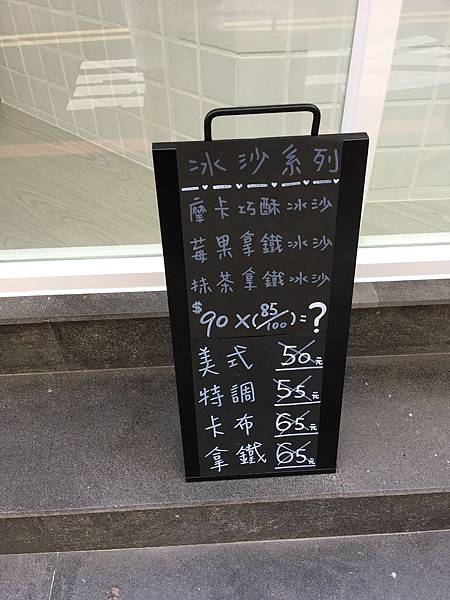 冰沙系列
摩卡巧酥冰沙
莓果拿鐵冰沙
抹茶拿鐵冰沙
$90×(85/100)=?
美式 50元
特調 55元
卡布 65元
拿鐵 65元